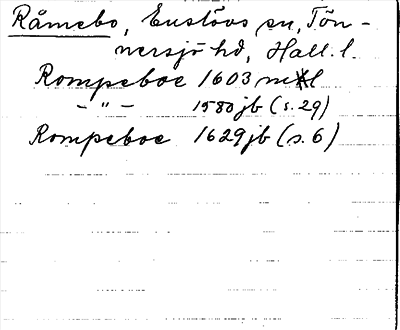 Råmebo, Enslövs sn, Tön-
nersjö hd, Hall. l.
Rompeboe 1603 mkl
— " — 1580 jb (s. 29)
Rompeboe 1629 jb (s. 6)